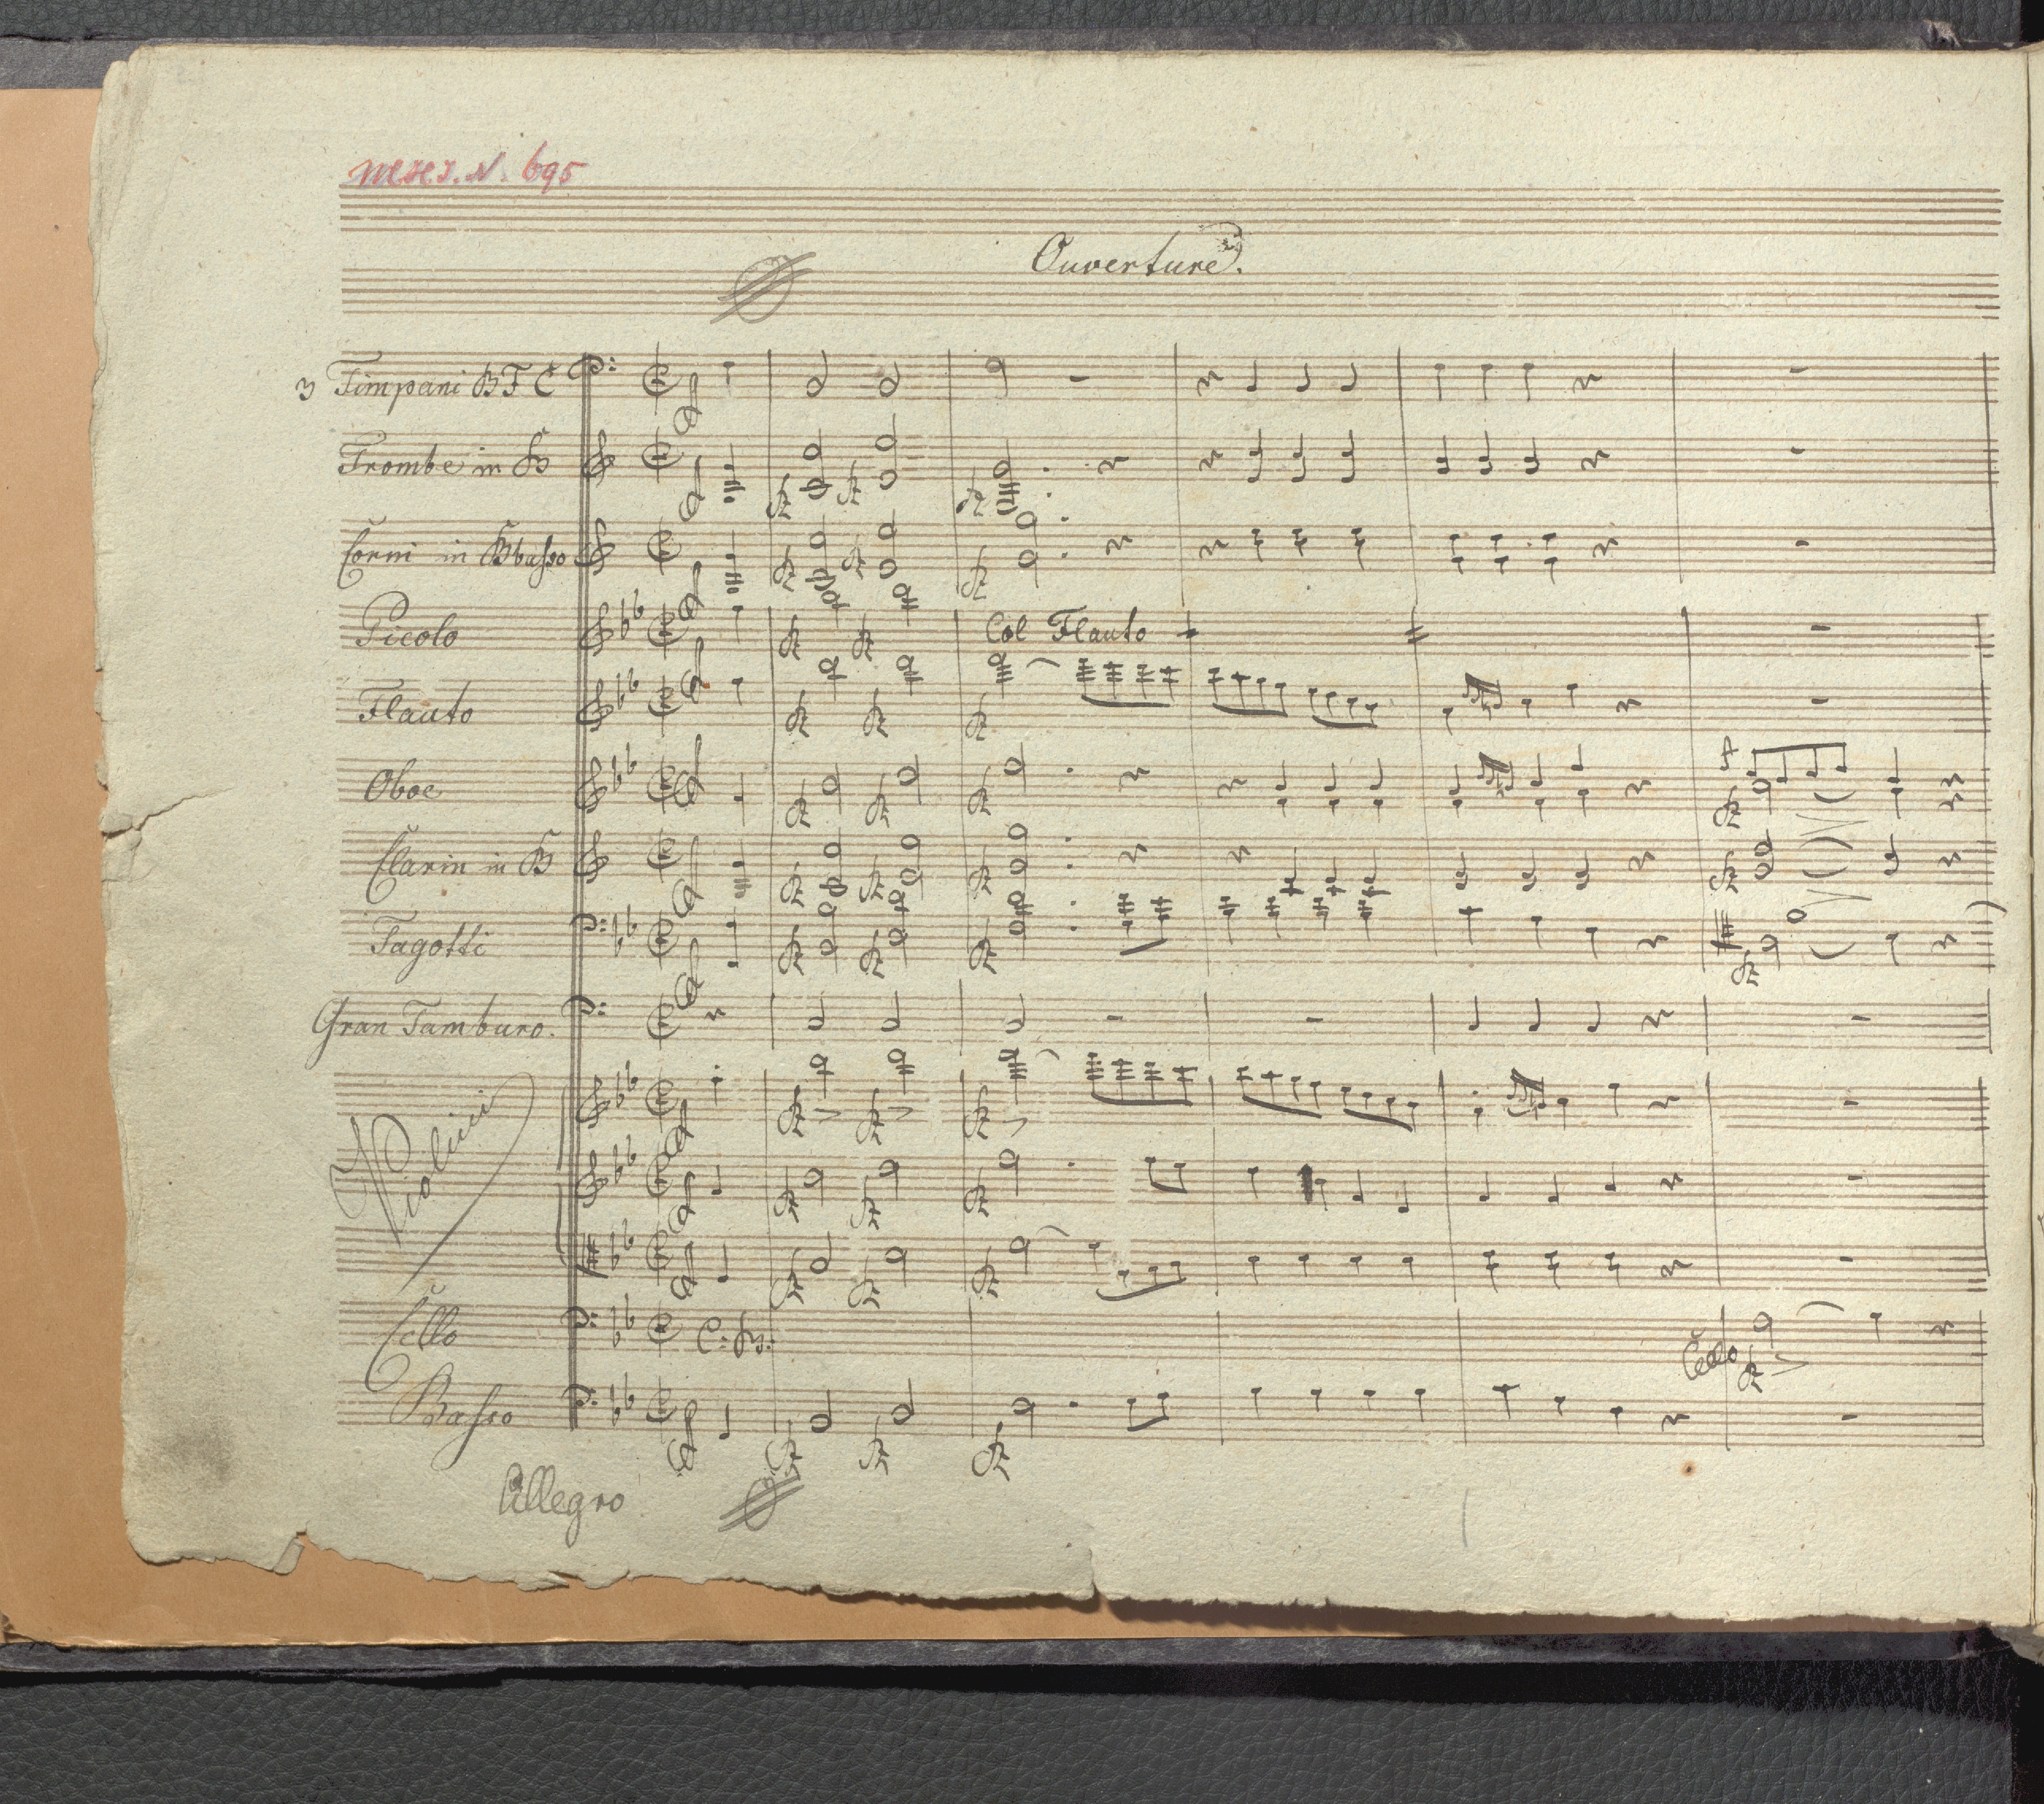 N. 695
Ouverture.
3 Timpani B F C
Trombe in B
Corni in B basso
Picolo
Col Flauto
Flauto
Oboe
Clarin in B
Fagotti
Gran Tamburo.
Violini
Cello
C: B:
Cello
Basso
Allegro